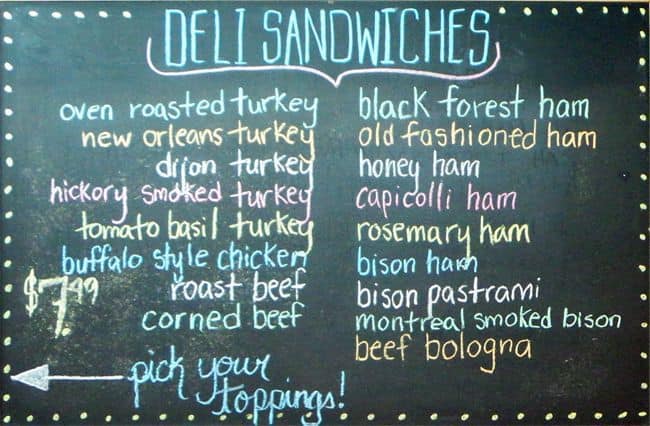 DELI SANDWICHES
oven roasted turkey
new orleans turkey
dijon turkey
hickory smoked turkey
tomato basil turkey
buffalo style chicken
roast beef
corned beef
$7.99
black forest ham
old fashioned ham
honey ham
capicolli ham
rosemary ham
bison ham
bison pastrami
montreal smoked bison
beef bologna
pick your
toppings!